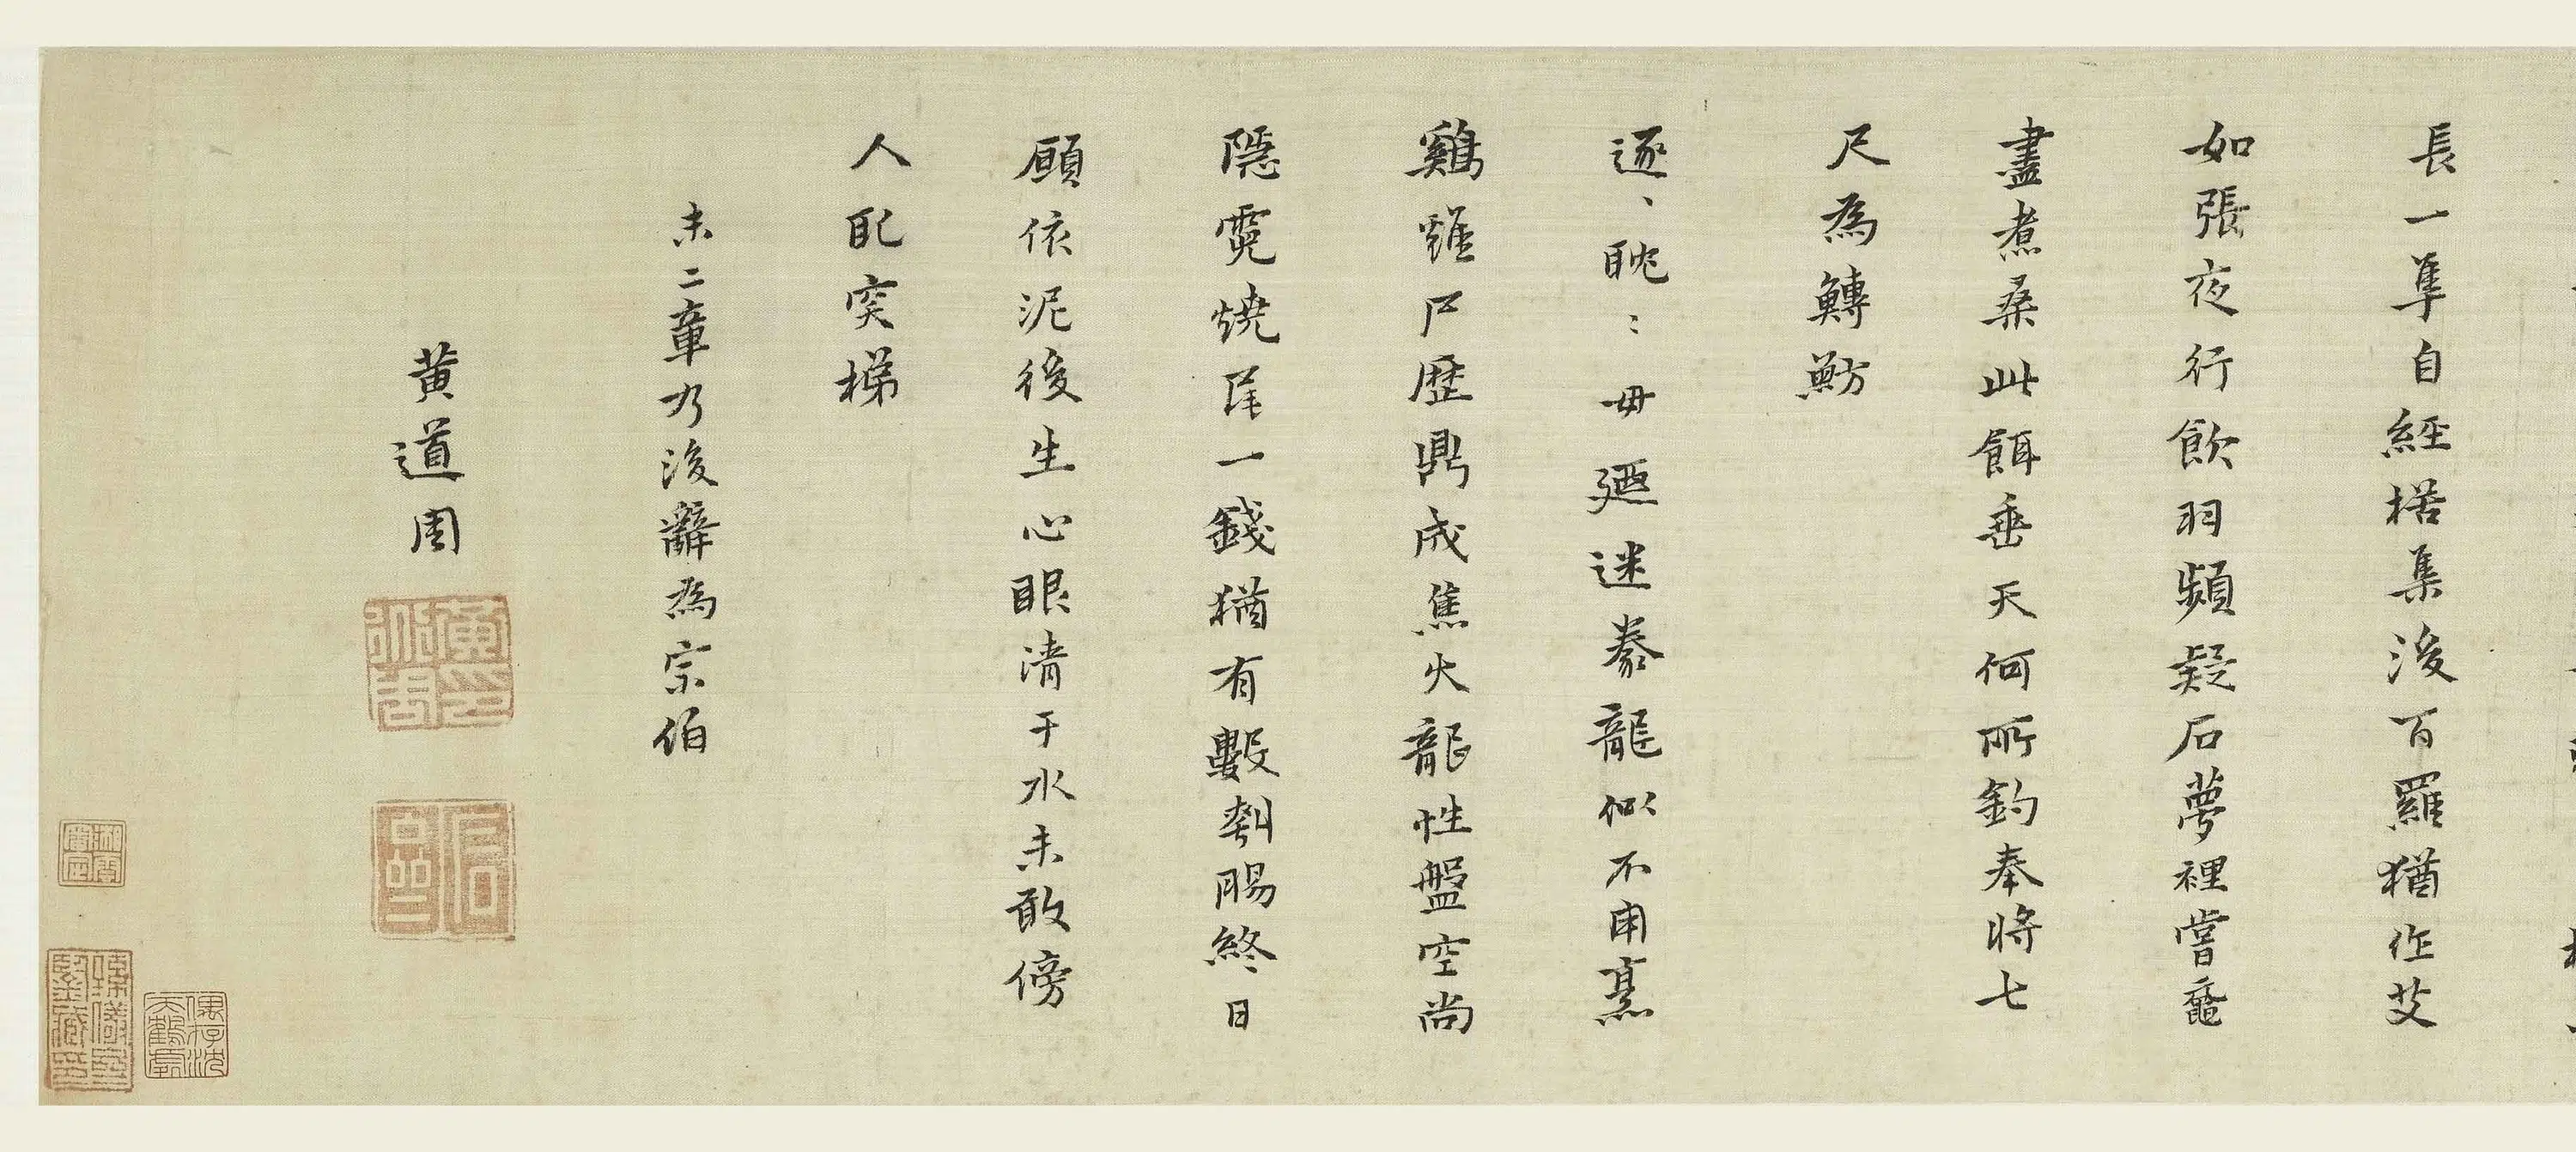 長一隼自經桰集後百羅猶作艾
如張夜行飲羽頻疑石夢裡嘗黿
盡煮桑此餌垂天何所釣奉將七
尺為鱄魴
逐、眈：毋迷豢龍似不用熹
鷄雖尸歷鼎成焦火龍性盤空尚
隱霓燒尾一錢猶有數刲腸終日
願依泥後生心眼清于水未敢傍
人配突梯
未二章乃後辭為宗伯
黄道周